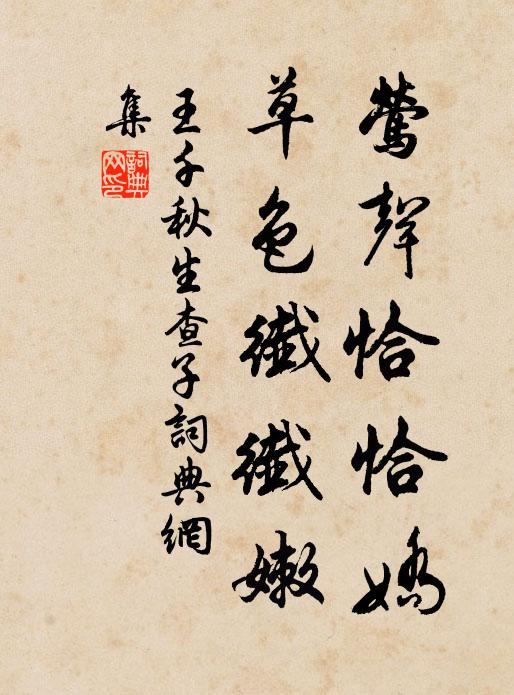 鶯聲恰恰嬌
草色纖纖嫩
王千秋生查子詞典網
集
詞典网印